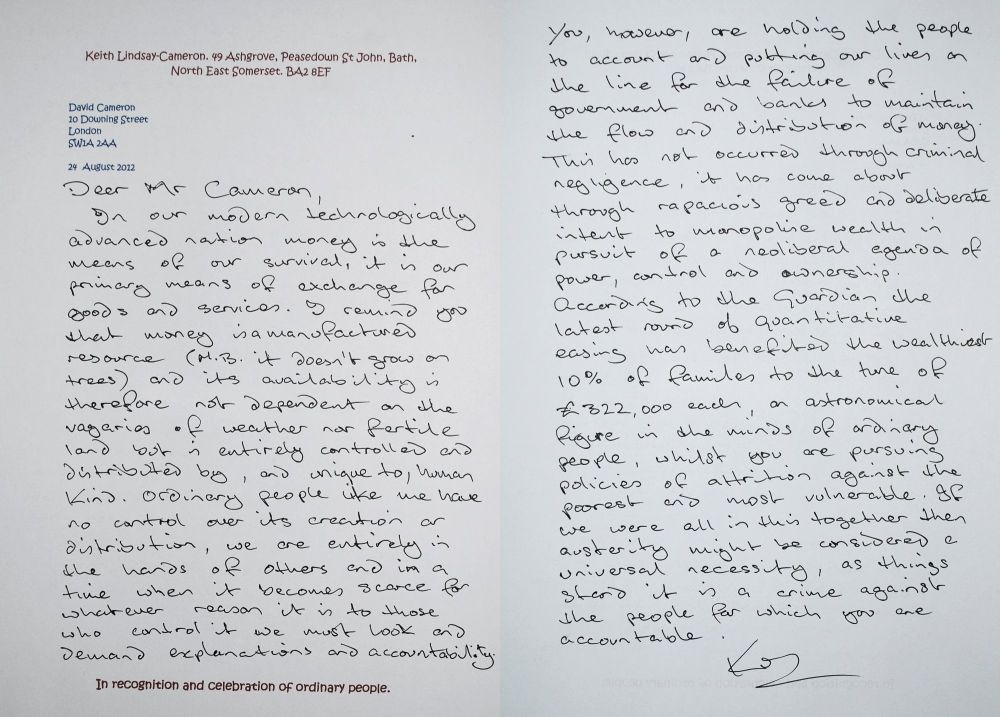 Keith Lindsay-Cameron. 49 Ashgrove, Peasedown St John, Bath,
North East Somerset. BA2 8EF
David Cameron
10 Downing Street
London
SW1A 2AA
24 August 2012
Dear Mr Cameron,
In our modern technologically
advanced nation money is the
means of our survival, it is our
primary means of exchange for
goods and services. I remind you
that money is a manufactured
resource (N.B. it doesn't grow on
trees) and its availability is
therefore not dependent on the
vagaries of weather nor fertile
land but is entirely controlled and
distributed by, and unique to, human
kind. Ordinary people like me have
no control over its creation or
distribution, we are entirely in
the hands of others and in a
time when it becomes scarce for
whatever reason it is to those
who control it we must look and
demand explanations and accountability.
In recognition and celebration of ordinary people.
You, however, are holding the people
to account and putting our lives on
the line for the failure of
government and banks to maintain
the flow and distribution of money.
This has not occurred through criminal
negligence, it has come about
through rapacious greed and deliberate
intent to monopolise wealth in
pursuit of a neoliberal agenda of
power, control and ownership.
According to the Guardian the
latest round of quantitative
easing has benefited the wealthiest
10% of families to the tune of
£322,000 each, an astronomical
figure in the minds of ordinary
people, whilst you are pursuing
policies of attrition against the
poorest and most vulnerable. If
we were all in this together then
austerity might be considered a
universal necessity, as things
stand it is a crime against
the people for which you are
accountable.